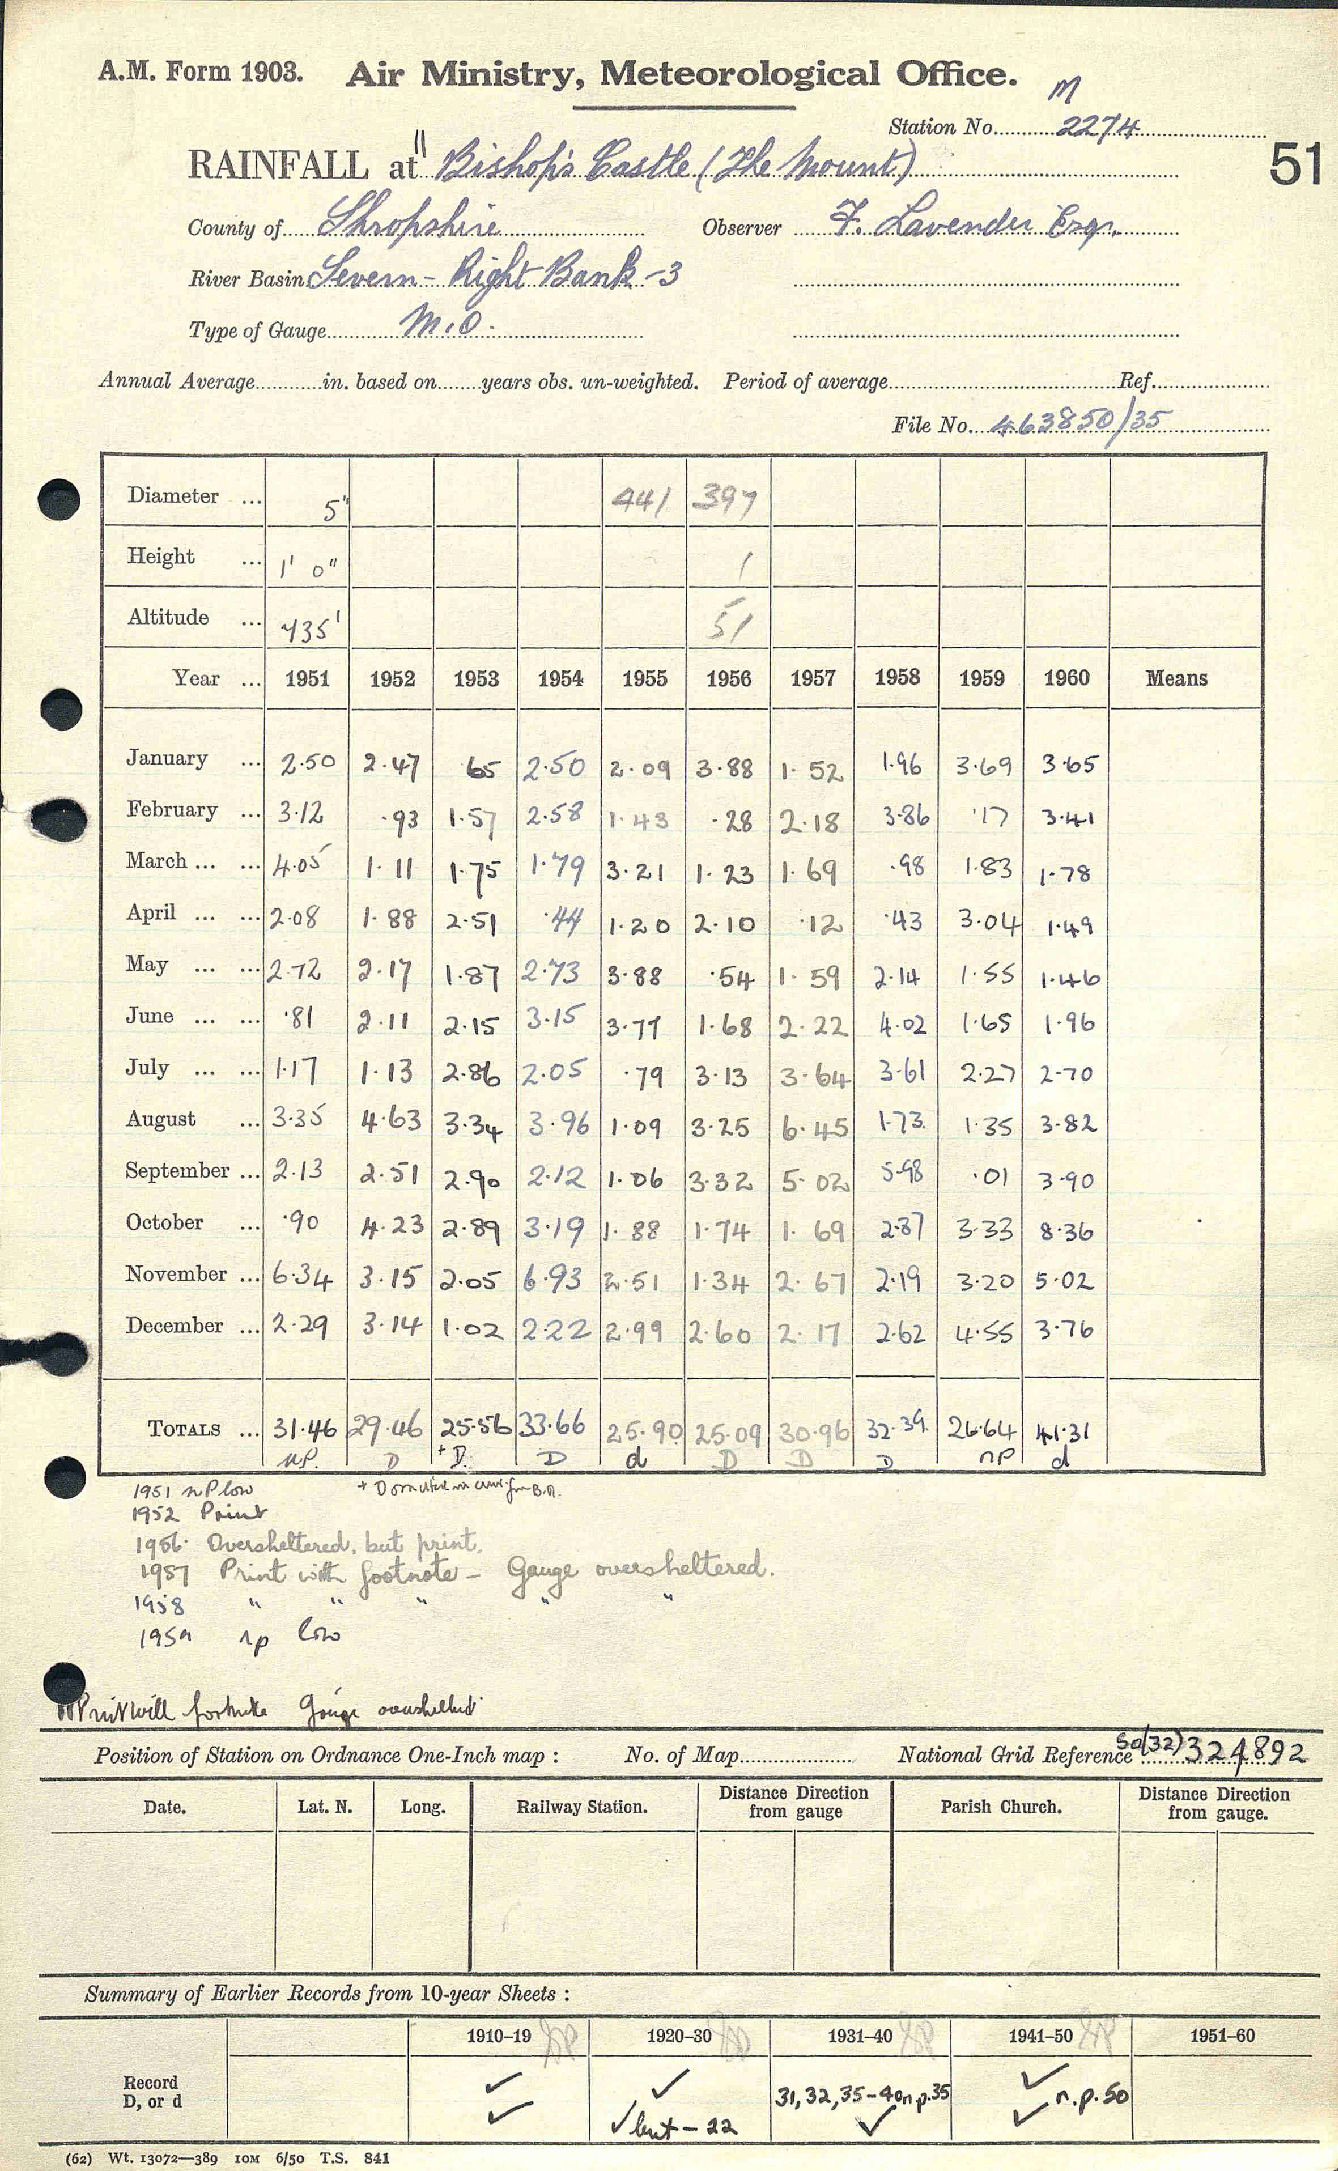 A.M. Form 1903. Air Ministry, Meteorological Office.
M
Station No. 2274
RAINFALL at " Bishop's Castle (The Mount)
51
County of Shropshire Observer F. Lavender Esqr.
River Basin Severn - Right Bank - 3
Type of Gauge M.O.
Annual Average in. based on years obs. un-weighted. Period of average Ref.
File No. 463850/35
Diameter ... 5" 441 397
Height ... 1' 0" 1
Altitude ... 735' 51
Year ... 1951 1952 1953 1954 1955 1956 1957 1958 1959 1960 Means
January ... 2.50 2.47 .65 2.50 2.09 3.88 1.52 1.96 3.69 3.65
February ... 3.12 .93 1.57 2.58 1.43 .28 2.18 3.86 .17 3.41
March ... ... 4.05 1.11 1.75 1.79 3.21 1.23 1.69 .98 1.83 1.78
April ... ... 2.08 1.88 2.51 .44 1.20 2.10 .12 .43 3.04 1.49
May ... ... 2.72 2.17 1.87 2.73 3.88 .54 1.59 2.14 1.55 1.46
June ... ... .81 2.11 2.15 3.15 3.77 1.68 2.22 4.02 1.65 1.96
July ... ... 1.17 1.13 2.86 2.05 .79 3.13 3.64 3.61 2.27 2.70
August ... 3.35 4.63 3.34 3.96 1.09 3.25 6.45 1.73 1.35 3.82
September ... 2.13 2.51 2.90 2.12 1.06 3.32 5.02 5.98 .01 3.90
October ... .90 4.23 2.89 3.19 1.88 1.74 1.69 2.87 3.33 8.36
November ... 6.34 3.15 2.05 6.93 2.51 1.34 2.67 2.19 3.20 5.02
December ... 2.29 3.14 1.02 2.22 2.99 2.60 2.17 2.62 4.55 3.76
TOTALS ... 31.46 29.46 25.56 33.66 25.90 25.09 30.96 32.39 26.64 41.31
n.P. D + D. D d D D D nP d
1951 nP low + D omitted in error from B.R.
1952 Print
1956. Oversheltered, but print.
1957 Print with footnote - Gauge oversheltered.
1958 " " " " "
1959 np low
Print with footnote Gauge oversheltered
Position of Station on Ordnance One-Inch map : No. of Map National Grid Reference SO(32)324892
Date. Lat. N. Long. Railway Station. Distance Direction from gauge Parish Church. Distance Direction from gauge.
Summary of Earlier Records from 10-year Sheets :
1910-19 1920-30 1931-40 1941-50 1951-60
Record ✓ ✓ 31, 32, 35-40 n.p. 35 ✓ n.p. 50
D, or d ✓ ✓ but - 22 ✓ ✓
(62) Wt. 13072—389 10M 6/50 T.S. 841